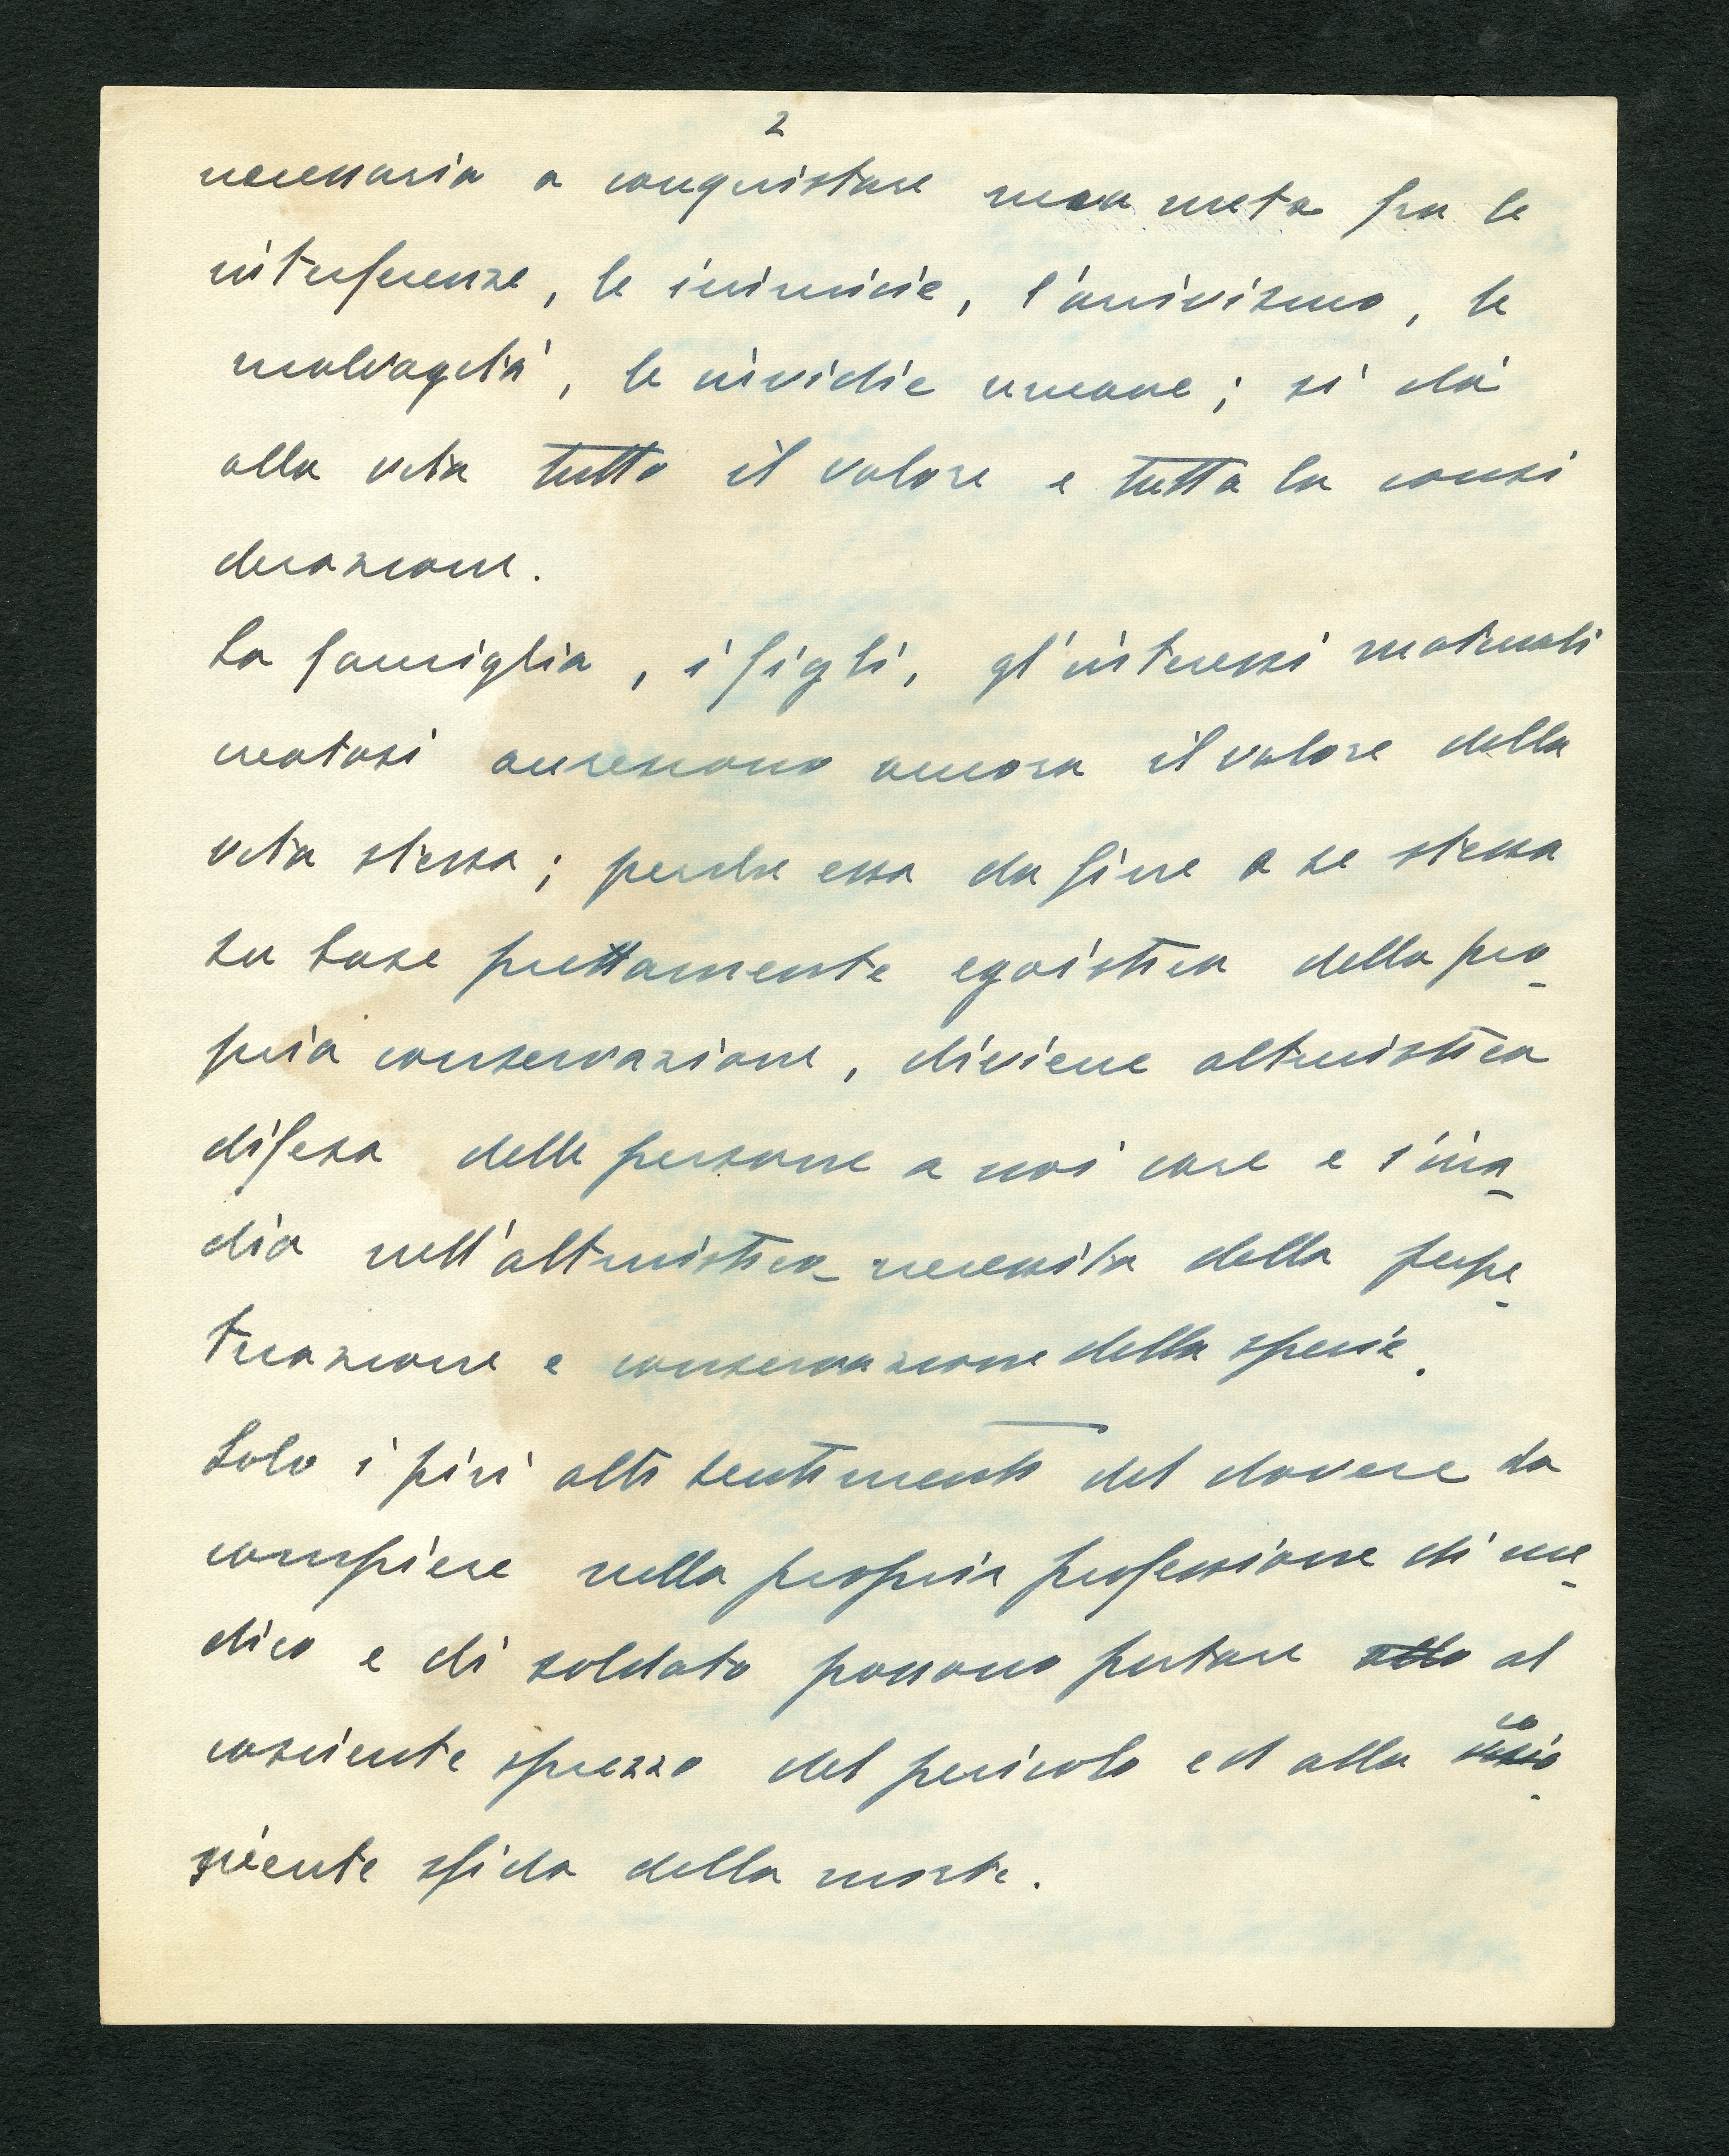 2
necessaria a conquistare una meta fra le
interferenze, le inimicie, l'arrivismo, le
malvagità, le invidie umane; si dà
alla vita tutto il valore e tutta la consi
derazione.
La famiglia, i figli, gl'interessi materiali
creatosi accrescono ancora il valore della
vita stessa; perche essa da fine a se stessa
su base prettamente egoistica della pro-
pria conservazione, diviene altruistica
difesa delle persone a noi care e s'ira-
dia nell'altruistica necessita della perpe-
tuazione e conservazione della specie.
Solo i più alti sentimenti del dovere da
compiere nella propria professione di me-
dico e di soldato possono portare al
cosciente sprezzo del pericolo ed alla co-
sciente sfida della morte.